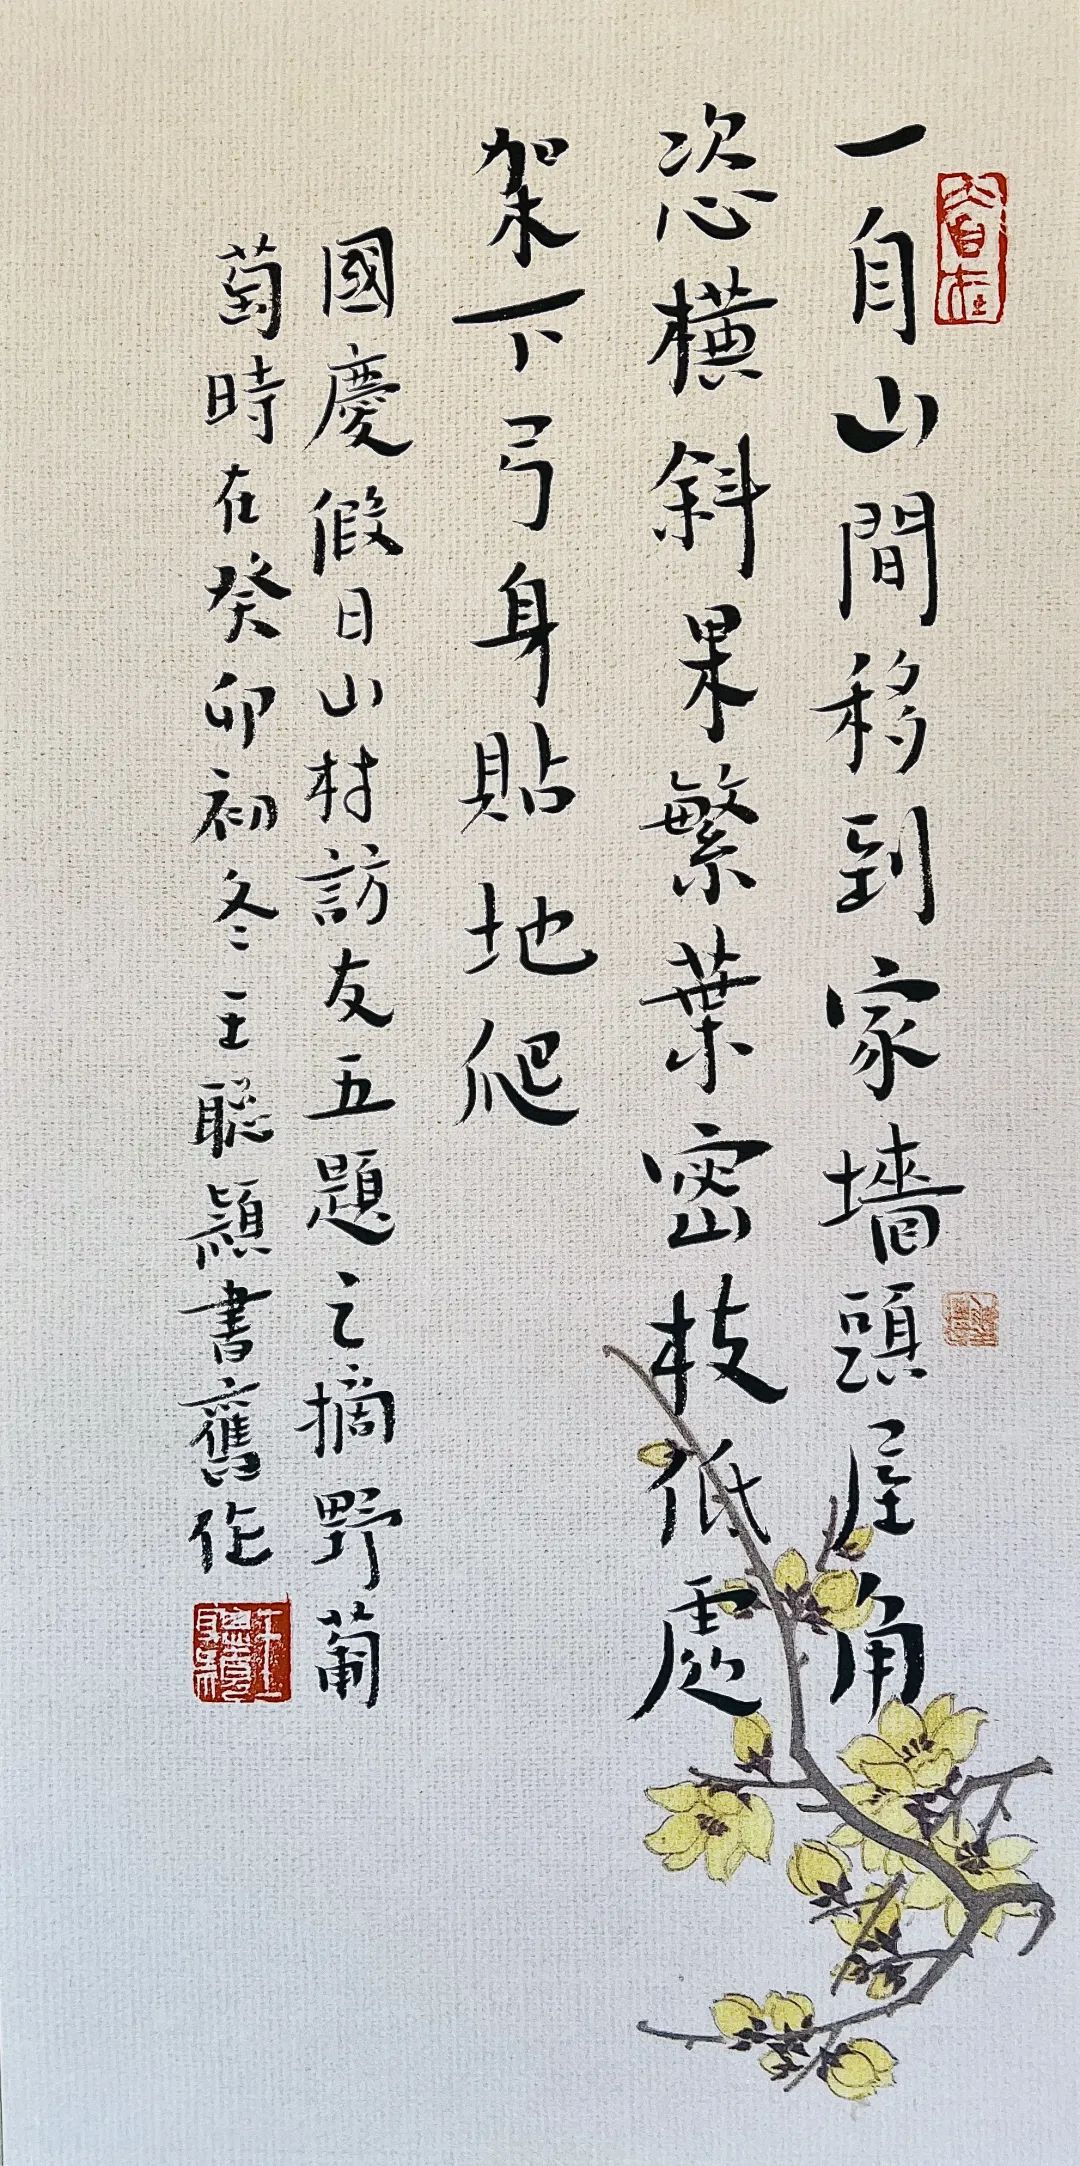 一自山間移到家墙頭屋角
恣橫斜果繁葉密枝低處
架下弓身貼地爬
國慶假日山村訪友五題之摘野葡
萄時在癸卯初冬王聰穎書舊作